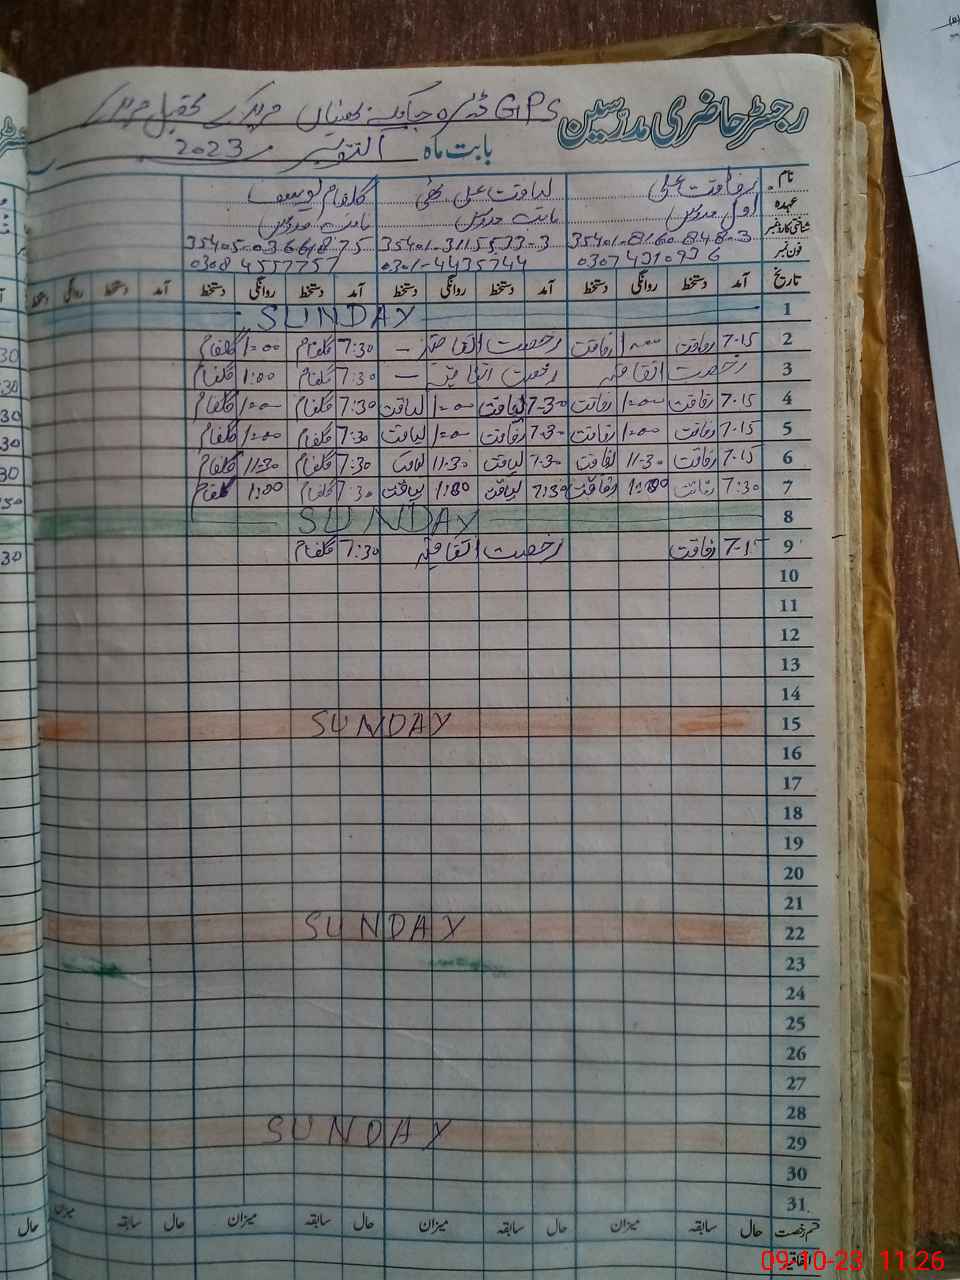 رجسٹر حاضری مدرسین GPS
بابت ماہ اکتوبر 2023
نام رفاقت علی لیاقت علی بھٹی گلفام یوسف
عہدہ اول مدرس نائب مدرس نائب مدرس
شناختی کارڈ نمبر 35401-8160848-3 35401-3115533-3 35405-0366187-5
فون نمبر 0301-4435744 0308 4557757
تاریخ آمد دستخط روانگی دستخط آمد دستخط روانگی دستخط آمد دستخط روانگی دستخط آمد دستخط روانگی دستخط
1 SUNDAY
2 7-15 رفاقت 1:00 رفاقت رخصت اتفاقیہ — 7:30 گلفام 1:00 گلفام
3 رخصت اتفاقیہ رخصت اتفاقیہ — 7:30 گلفام 1:00 گلفام
4 7.15 رفاقت 1:00 رفاقت 7-30 لیاقت 1:00 لیاقت 7:30 گلفام 1:00 گلفام
5 7-15 رفاقت 1:00 رفاقت 7.30 1:00 لیاقت 7:30 گلفام 1:00 گلفام
6 7-15 رفاقت 11-30 رفاقت 7.30 لیاقت 11.30 لیاقت 7:30 گلفام 11:30 گلفام
7 7:30 رفاقت 1:00 رفاقت 7:30 لیاقت 1:00 لیاقت 7:30 گلفام 1:00 گلفام
8 SUNDAY
9 7-15 رفاقت رخصت اتفاقیہ 7:30 گلفام
10
11
12
13
14
15 SUNDAY
16
17
18
19
20
21
22 SUNDAY
23
24
25
26
27
28
29 SUNDAY
30
31
قسم رخصت حال سابقہ میزان حال سابقہ میزان حال سابقہ میزان حال سابقہ میزان
اتفاقیہ
09-10-23 11:26